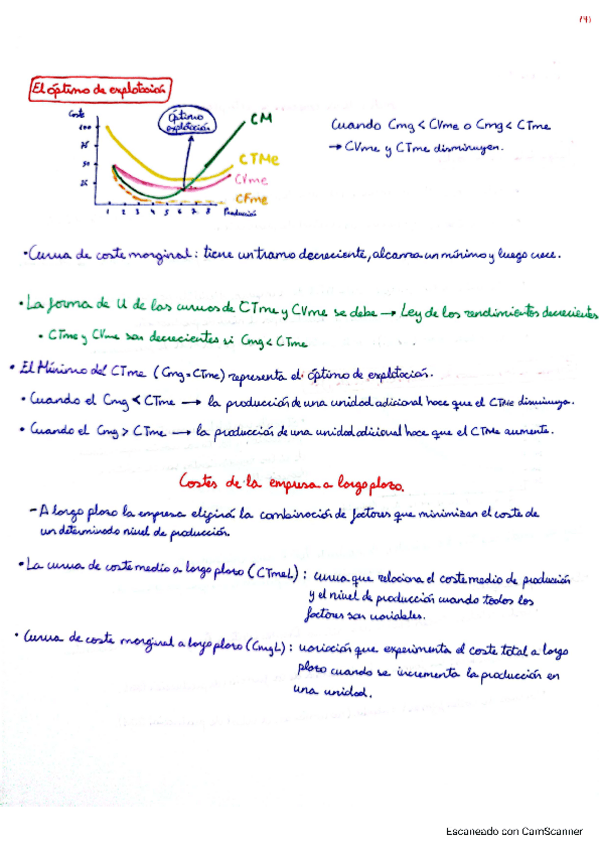 (4)
El óptimo de explotación
Coste
100
75
50
25
1 2 3 4 5 6 7 8 Producción
Óptimo
explotación
CM
CTMe
CVme
CFme
Cuando Cmg < CVme o Cmg < CTme
→ CVme y CTme disminuyen.
• Curva de coste marginal: tiene un tramo decreciente, alcanza un mínimo y luego crece.
• La forma de U de las curvas de CTme y CVme se debe → Ley de los rendimientos decrecientes
• CTme y CVme son decrecientes si Cmg < CTme
• El Mínimo del CTme (Cmg = CTme) representa el óptimo de explotación.
• Cuando el Cmg < CTme → la producción de una unidad adicional hace que el CTMe disminuya.
• Cuando el Cmg > CTme → la producción de una unidad adicional hace que el CTMe aumente.
Costes de la empresa a largo plazo.
- A largo plazo la empresa eligirá la combinación de factores que minimizan el coste de
un determinado nivel de producción.
• La curva de coste medio a largo plazo (CTmeL): curva que relaciona el coste medio de producción
y el nivel de producción cuando todos los
factores son variables.
• Curva de coste marginal a largo plazo (CmgL): variación que experimenta el coste total a largo
plazo cuando se incrementa la producción en
una unidad.
Escaneado con CamScanner